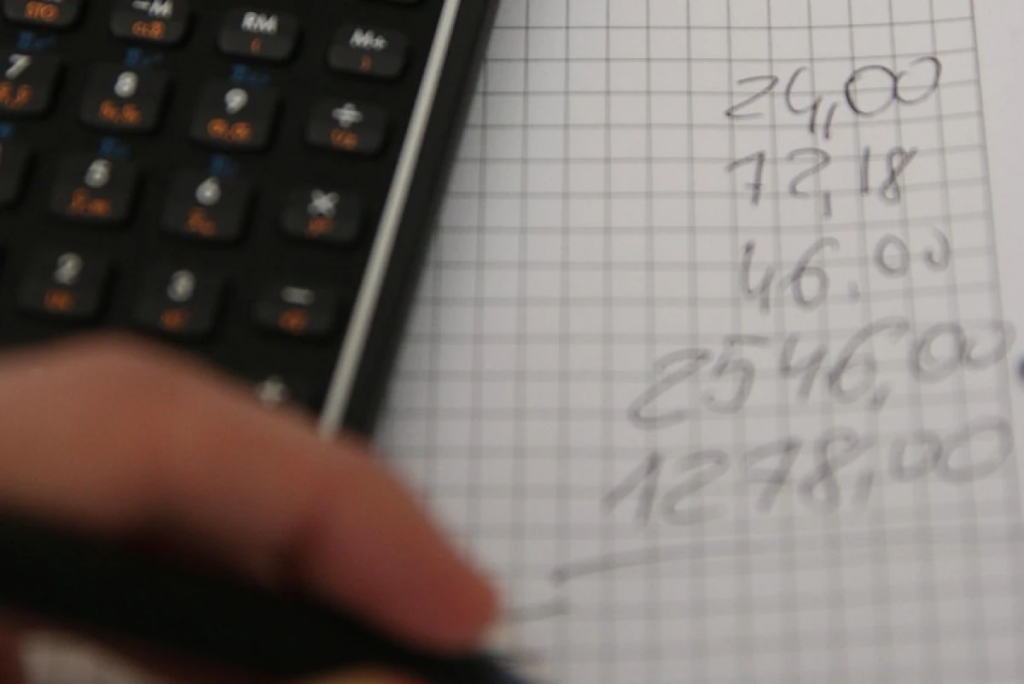 STO -M RM M+
7 8 9 ÷
5 6 ×
2 3 −
24,00
72,18
46.00
2546,00
1278,00